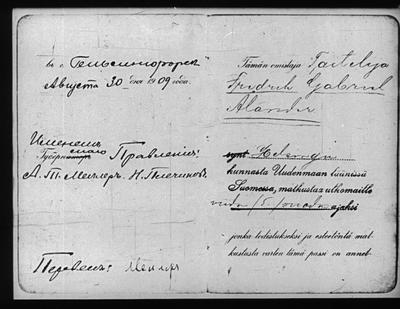 въ г. Гельсингфорсѣ
Августа 30 дня 1909 года.
Именемъ
Губернскаго Правленія:
А. П. Мечлеръ. Н.
Перевелъ: Мечлеръ
Tämän omistaja Taiteilija
Fredrik Gabriel
Alander
synt. Helsingin
kunnasta Uudenmaan läänissä
Suomessa, matkustaa ulkomaille
viiden /5/ vuoden ajaksi
jonka todistukseksi ja esteetöntä mat-
kustusta varten tämä passi on annet-